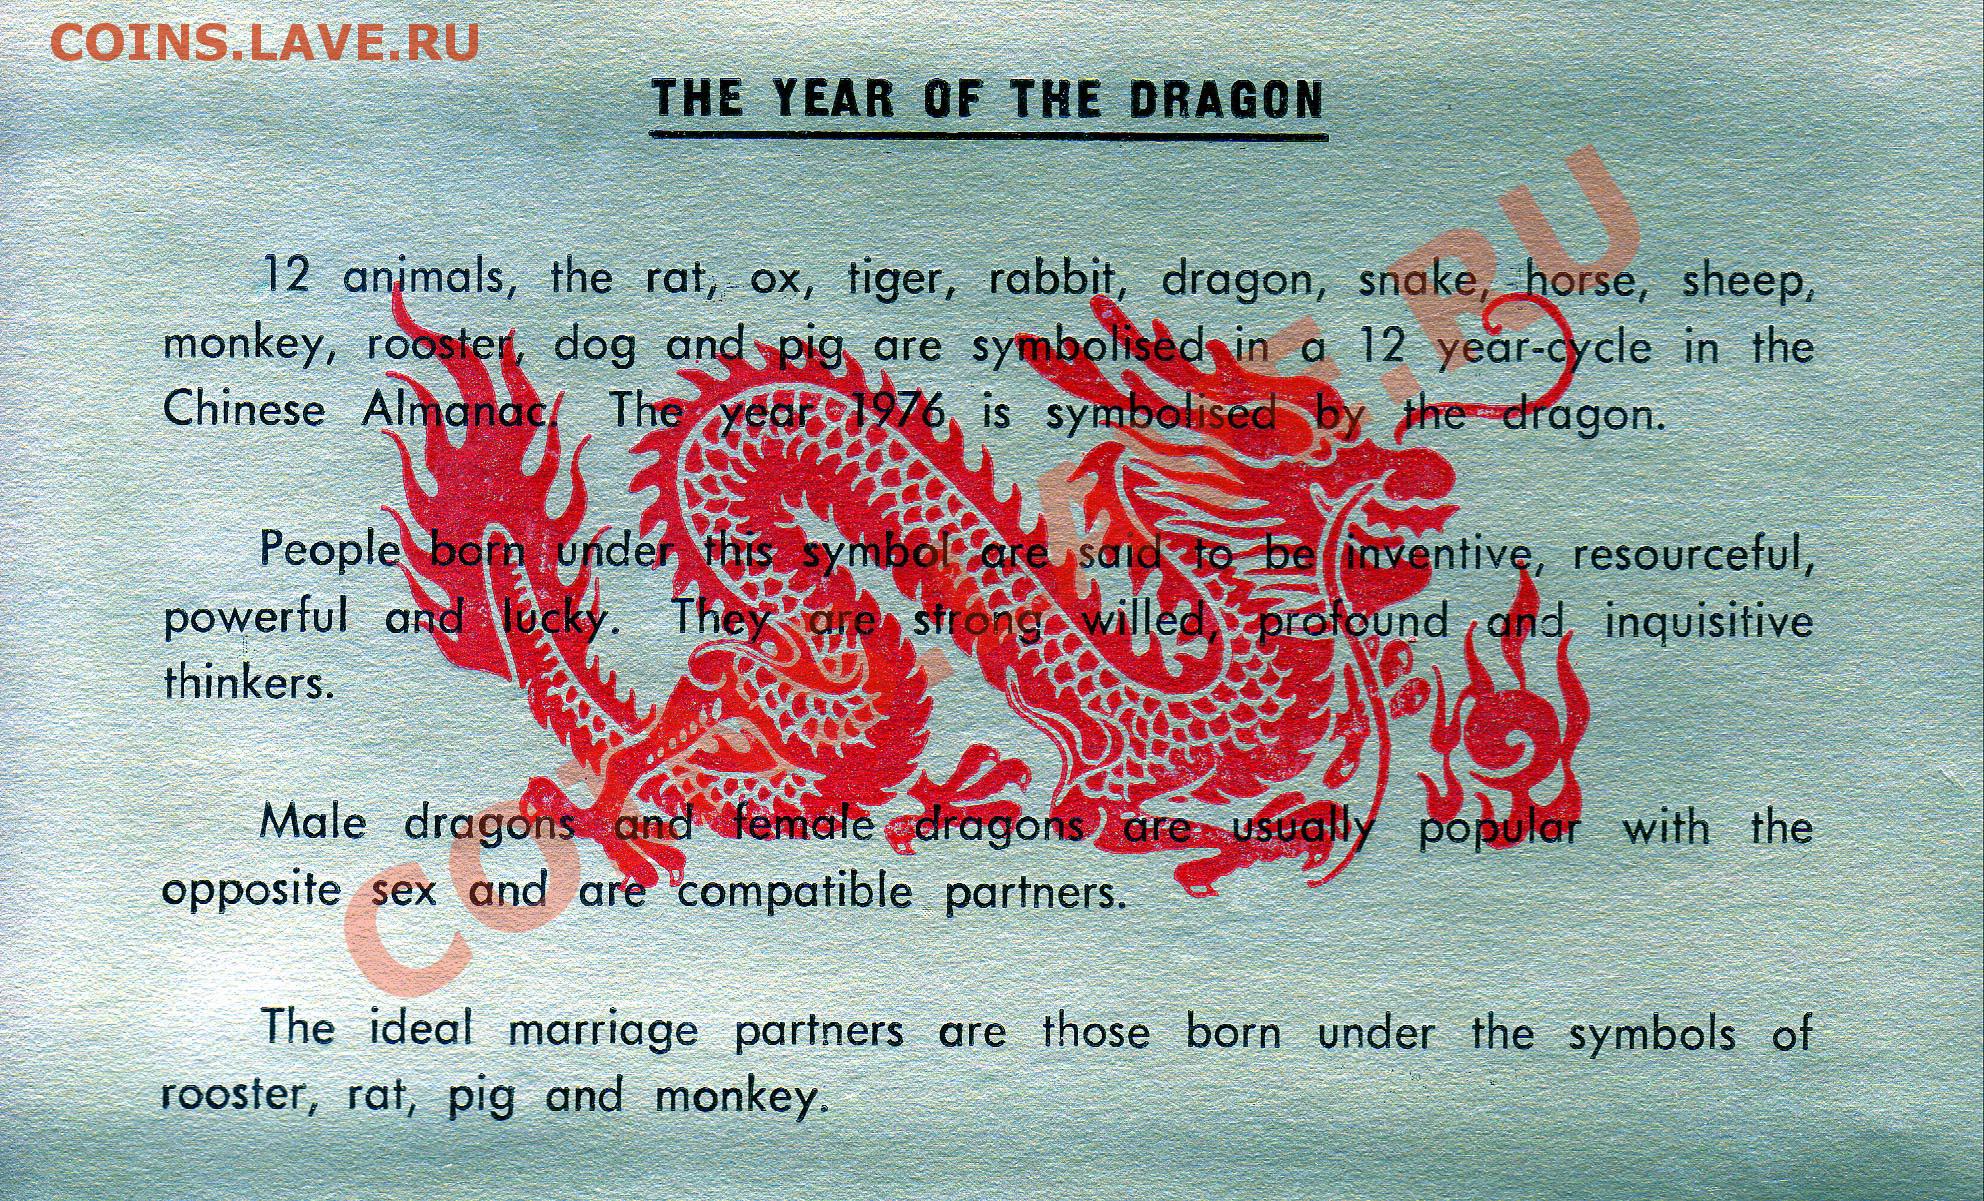 COINS.LAVE.RU
THE YEAR OF THE DRAGON
12 animals, the rat, ox, tiger, rabbit, dragon, snake, horse, sheep,
monkey, rooster, dog and pig are symbolised in a 12 year-cycle in the
Chinese Almanac. The year 1976 is symbolised by the dragon.
People born under this symbol are said to be inventive, resourceful,
powerful and lucky. They are strong willed, profound and inquisitive
thinkers.
Male dragons and female dragons are usually popular with the
opposite sex and are compatible partners.
The ideal marriage partners are those born under the symbols of
rooster, rat, pig and monkey.
COINS.LAVE.RU